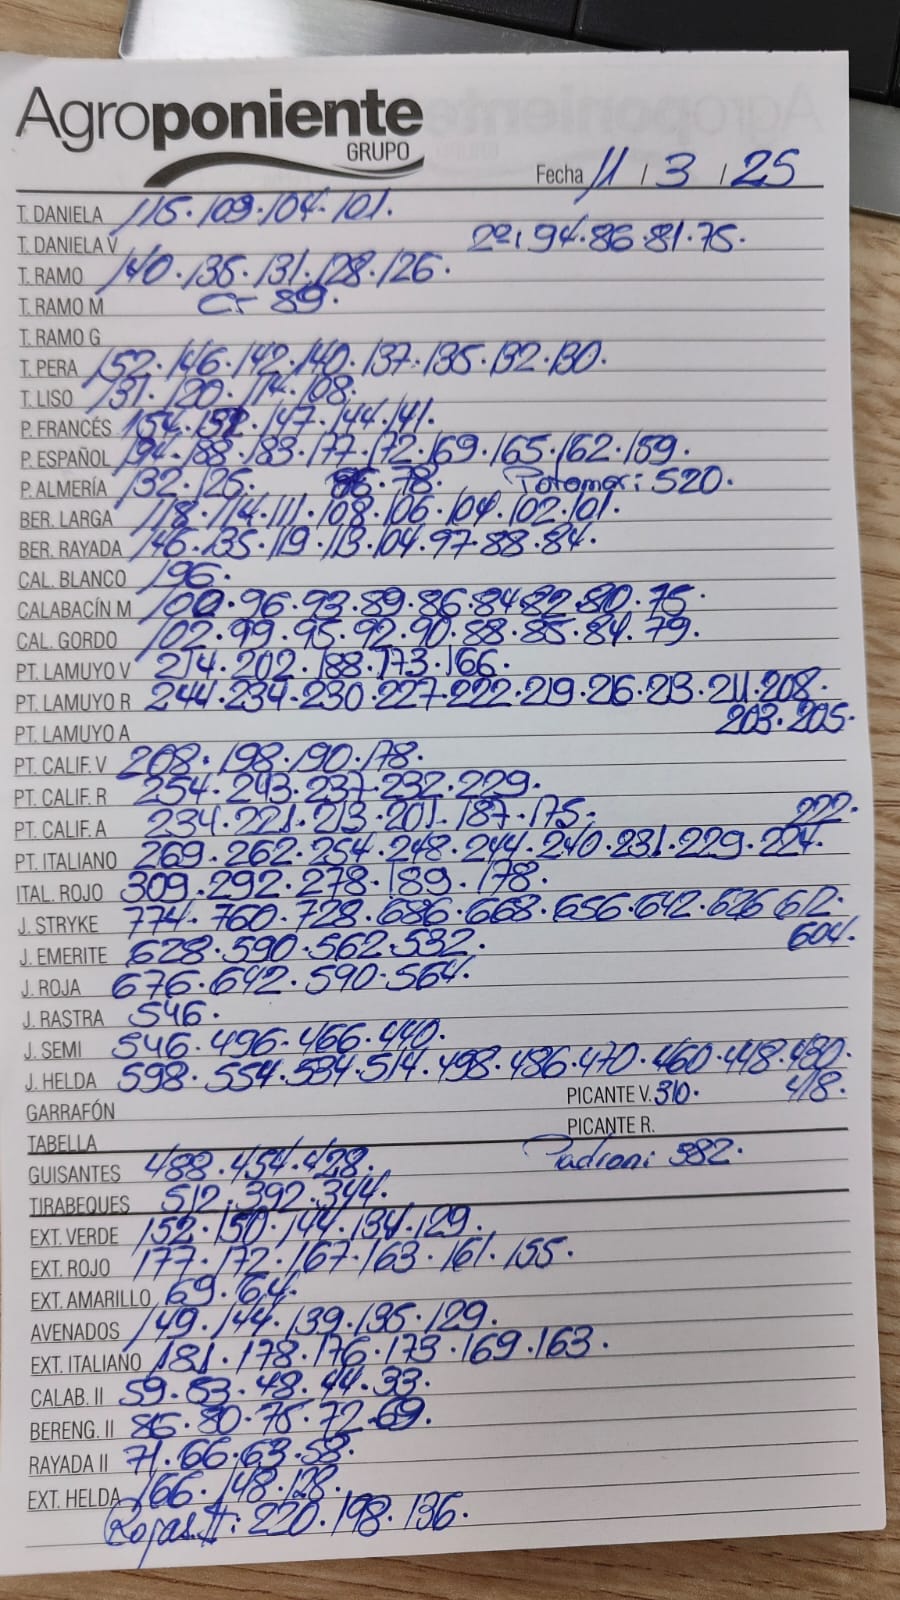 Agroponiente
GRUPO
Fecha 11 / 3 / 25
T. DANELA 115. 109. 104. 101.
T. DANIELA V 2ª: 94. 86. 81. 75.
T. RAMO 140. 135. 131. 128. 126.
T. RAMO M Cr 89.
T. RAMO G
T. PERA 152. 146. 142. 140. 137. 135. 132. 130.
T. LISO 131. 120. 114. 108.
P. FRANCÉS 154. 151. 147. 144. 141.
P. ESPAÑOL 194. 188. 183. 177. 172. 169. 165. 162. 159.
P. ALMERÍA 132. 125. 86. 78. Potomac: 520.
BER. LARGA 118. 114. 111. 108. 106. 104. 102. 101.
BER. RAYADA 146. 135. 119. 113. 104. 97. 88. 84.
CAL. BLANCO 196.
CALABACÍN M 100. 96. 93. 89. 86. 84. 82. 80. 75.
CAL. GORDO 102. 99. 95. 92. 90. 88. 85. 84. 79.
PT. LAMUYO V 214. 202. 188. 173. 166.
PT. LAMUYO R 244. 234. 230. 227. 222. 219. 216. 213. 211. 208.
PT. LAMUYO A 203. 205.
PT. CALIF. V 208. 198. 190. 178.
PT. CALIF. R 254. 243. 237. 232. 229.
PT. CALIF. A 234. 221. 213. 201. 187. 175. 222.
PT. ITALIANO 269. 262. 254. 248. 244. 240. 231. 229. 224.
ITAL. ROJO 309. 292. 278. 189. 178.
J. STRYKE 774. 760. 728. 686. 668. 656. 642. 626 612.
J. EMERITE 628. 590. 562. 532. 604.
J. ROJA 676. 642. 590. 564.
J. RASTRA 546.
J. SEMI 546. 496. 466. 440.
J. HELDA 598. 554. 534. 514. 498. 486. 470. 460. 448. 430.
GARRAFÓN PICANTE V. 310. 418.
TABELLA PICANTE R.
GUISANTES 488. 454. 428. Padron: 382.
TIRABEQUES 512. 392. 344.
EXT. VERDE 152. 150. 144. 134. 129.
EXT. ROJO 177. 172. 167. 163. 161. 155.
EXT. AMARILLO 69. 64.
AVENADOS 149. 144. 139. 135. 129.
EXT. ITALIANO 181. 178. 176. 173. 169. 163.
CALAB. II 59. 53. 48. 44. 33.
BERENG. II 85. 80. 75. 72. 69.
RAYADA II 71. 66. 63. 58.
EXT. HELDA 166. 148. 128.
Rojas II: 220. 198. 136.